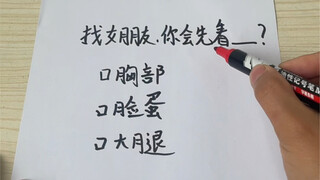 找女朋友,你会先看__?
口胸部
口脸蛋
口大腿
记号笔